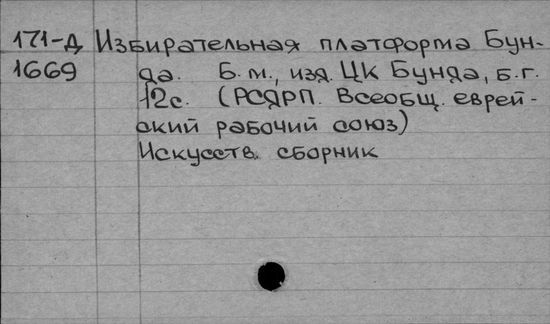 171-Д Избирательная платформа Бун-
1669 да. Б.м., изд. ЦК Бунда, б.г.
12с. (РСДРП. Всеобщ. еврей-
ский рабочий союз)
Искусств. сборник